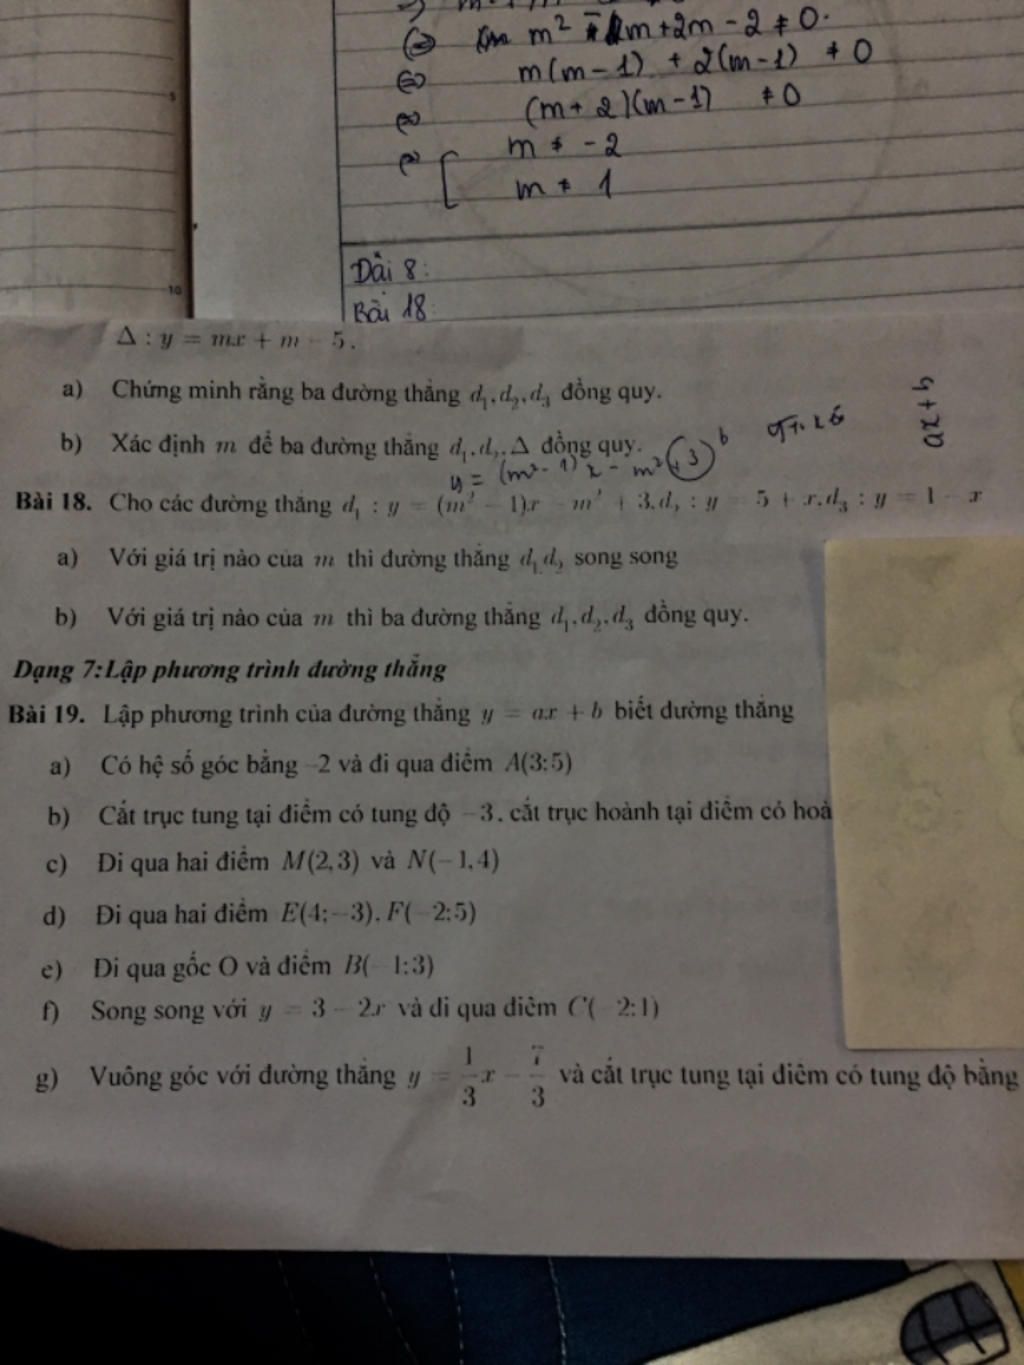 m² - m + 2m - 2 ≠ 0.
⇔ m(m - 1) + 2(m - 1) ≠ 0
⇔ (m + 2)(m - 1) ≠ 0
⇔ [ m ≠ -2
m ≠ 1
5
10
Bài 18:
Δ : y = mx + m - 5.
a) Chứng minh rằng ba đường thẳng d₁, d₂, d₃ đồng quy.
b) Xác định m để ba đường thẳng d₁, d₂, Δ đồng quy.
ax + b
y = (m² - 1)x - m² + 3 b
Bài 18. Cho các đường thẳng d₁ : y = (m² - 1)x - m² + 3, d₂ : y = 5 + x, d₃ : y = 1 - x
a) Với giá trị nào của m thì đường thẳng d₁ d₂ song song
b) Với giá trị nào của m thì ba đường thẳng d₁, d₂, d₃ đồng quy.
Dạng 7: Lập phương trình đường thẳng
Bài 19. Lập phương trình của đường thẳng y = ax + b biết đường thẳng
a) Có hệ số góc bằng -2 và đi qua điểm A(3;5)
b) Cắt trục tung tại điểm có tung độ -3, cắt trục hoành tại điểm có hoà
c) Đi qua hai điểm M(2,3) và N(-1,4)
d) Đi qua hai điểm E(4;-3), F(-2;5)
e) Đi qua gốc O và điểm B(-1;3)
f) Song song với y = 3 - 2x và đi qua điểm C(-2;1)
g) Vuông góc với đường thẳng y = 1/3 x - 7/3 và cắt trục tung tại điểm có tung độ bằng